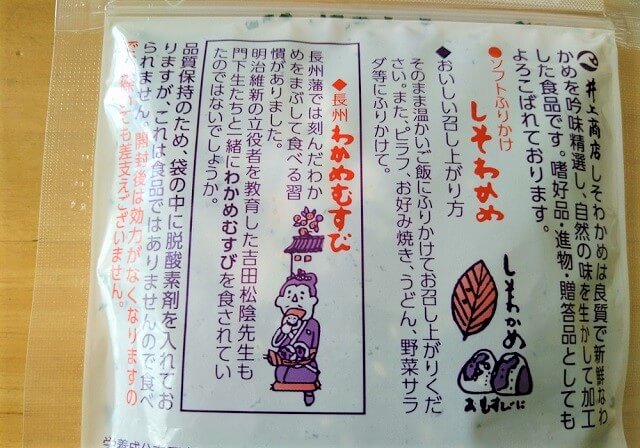 井上商店しそわかめは良質で新鮮なわ
かめを吟味精選し、自然の味を生かして加工
した食品です。嗜好品・進物・贈答品としても
よろこばれております。
◆ソフトふりかけ
しそわかめ
◆おいしい召し上がり方
そのまま温かいご飯にふりかけてお召し上がりくだ
さい。また、ピラフ、お好み焼き、うどん、野菜サラ
ダ等にふりかけて。
しそわかめ
おむすびに
◆長州わかめむすび
長州藩では刻んだわか
めをまぶして食べる習
慣がありました。
明治維新の立役者を教育した吉田松陰先生も
門下生たちと一緒にわかめむすびを食されてい
たのではないでしょうか。
品質保持のため、袋の中に脱酸素剤を入れてお
りますが、これは食品ではありませんので食べ
られません。開封後は効力がなくなりますの
で、除いても差支えございません。